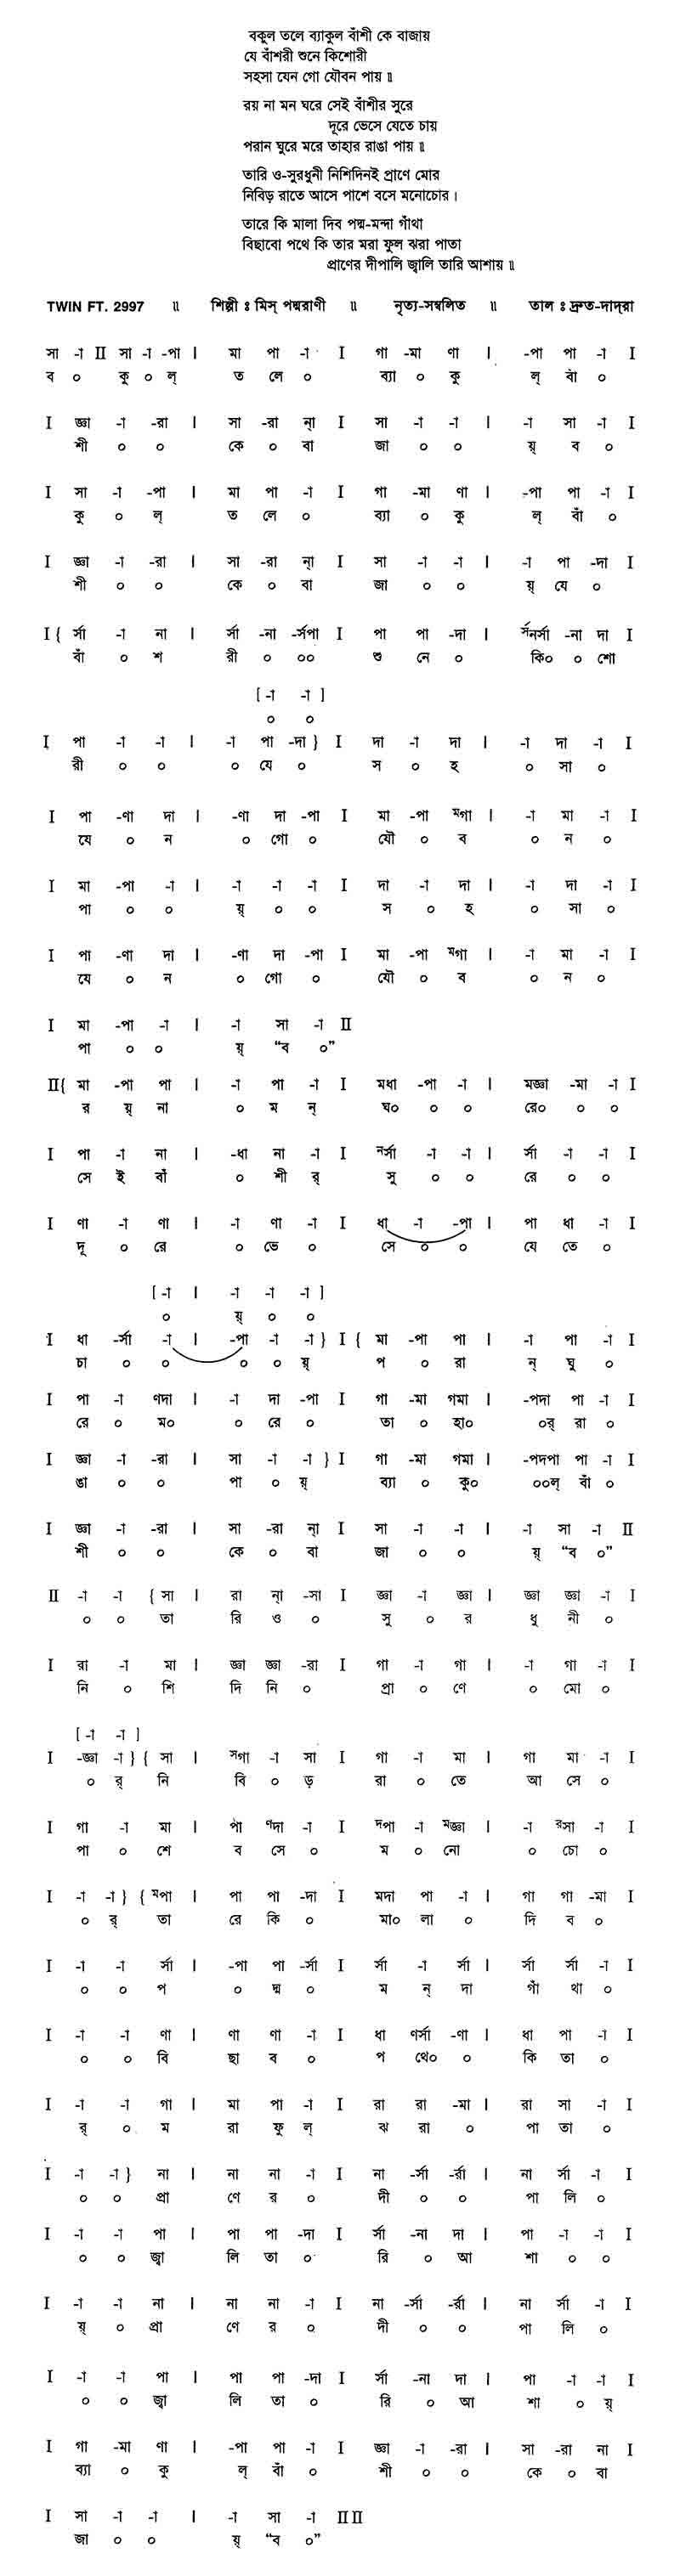 বকুল তলে ব্যাকুল বাঁশী কে বাজায়
যে বাঁশরী শুনে কিশোরী
সহসা যেন গো যৌবন পায় ॥
রয় না মন ঘরে সেই বাঁশীর সুরে
দূরে ভেসে যেতে চায়
পরান ঘুরে মরে তাহার রাঙা পায় ॥
তারি ও-সুরধুনী নিশিদিনই প্রাণে মোর
নিবিড় রাতে আসে পাশে বসে মনোচোর।
তারে কি মালা দিব পদ্ম-মন্দা গাঁথা
বিছাবো পথে কি তার মরা ফুল ঝরা পাতা
প্রাণের দীপালি জ্বালি তারি আশায় ॥
TWIN FT. 2997 ॥ শিল্পী ঃ মিস্ পদ্মরাণী ॥ নৃত্য-সম্বলিত ॥ তাল ঃ দ্রুত-দাদ্‌রা
সা -া II সা -া -পা | মা পা -া I গা -মা ণা | -পা পা -া I
ব ০ কু ০ ল্ ত লে ০ ব্যা ০ কু ল্ বাঁ ০
I জ্ঞা -া -রা | সা -রা ন্‌া I সা -া -া | -া সা -া I
শী ০ ০ কে ০ বা জা ০ ০ য়্ ব ০
I সা -া -পা | মা পা -া I গা -মা ণা | -পা পা -া I
কু ০ ল্ ত লে ০ ব্যা ০ কু ল্ বাঁ ০
I জ্ঞা -া -রা | সা -রা ন্‌া I সা -া -া | -া পা -দা I
শী ০ ০ কে ০ বা জা ০ ০ য়্ যে ০
I { র্সা -া না | র্সা -না -র্সপা I পা পা -দা | র্সনর্সা -না দা I
বাঁ ০ শ রী ০ ০০ শু নে ০ কি০ ০ শো
[ -া -া ]
০ ০
I পা -া -া | -া পা -দা } I দা -া দা | -া দা -া I
রী ০ ০ ০ যে ০ স ০ হ ০ সা ০
I পা -ণা দা | -ণা দা -পা I মা -পা মগা | -া মা -া I
যে ০ ন ০ গো ০ যৌ ০ ব ০ ন ০
I মা -পা -া | -া -া -া I দা -া দা | -া দা -া I
পা ০ ০ য়্ ০ ০ স ০ হ ০ সা ০
I পা -ণা দা | -ণা দা -পা I মা -পা মগা | -া মা -া I
যে ০ ন ০ গো ০ যৌ ০ ব ০ ন ০
I মা -পা -া | -া সা -া II
পা ০ ০ য়্ “ব ০”
II{ মা -পা পা | -া পা -া I মধা -পা -া | মজ্ঞা -মা -া I
র য়্ না ০ ম ন্ ঘ০ ০ ০ রে০ ০ ০
I পা -া না | -ধা না -া I নর্সা -া -া | র্সা -া -া I
সে ই বাঁ ০ শী র্ সু ০ ০ রে ০ ০
I ণা -া ণা | -া ণা -া I ধা -া -পা | পা ধা -া I
দূ ০ রে ০ ভে ০ সে ০ ০ যে তে ০
[ -া | -া -া -া ]
০ য়্ ০ ০
I ধা -র্সা -া | -পা -া -া } I { মা -পা পা | -া পা -া I
চা ০ ০ ০ ০ য়্ প ০ রা ন্ ঘু ০
I পা -া ণদা | -া দা -পা I গা -মা গমা | -পদা পা -া I
রে ০ ম০ ০ রে ০ তা ০ হা০ ০র্ রা ০
I জ্ঞা -া -রা | সা -া -া } I গা -মা গমা | -পদপা পা -া I
ঙা ০ ০ পা ০ য়্ ব্যা ০ কু০ ০০ল্ বাঁ ০
I জ্ঞা -া -রা | সা -রা ন্‌া I সা -া -া | -া সা -া II
শী ০ ০ কে ০ বা জা ০ ০ য়্ “ব ০”
II -া -া { সা | রা ন্‌া -সা I জ্ঞা -া জ্ঞা | জ্ঞা জ্ঞা -া I
০ ০ তা রি ও ০ সু ০ র ধু নী ০
I রা -া মা | জ্ঞা জ্ঞা -রা I গা -া গা | -া গা -া I
নি ০ শি দি নি ০ প্রা ০ ণে ০ মো ০
[ -া -া ]
I -জ্ঞা -া } { সা | সগা -া সা I গা -া মা | গা মা -া I
০ র্ নি বি ০ ড় রা ০ তে আ সে ০
I গা -া মা | পা ণদা -া I দপা -া মজ্ঞা | -া রসা -া I
পা ০ শে ব সে ০ ম ০ নো ০ চো ০
I -া -া } { মপা | পা পা -দা I মদা পা -া | গা গা -মা I
০ র্ তা রে কি ০ মা০ লা ০ দি ব ০
I -া -া র্সা | -পা পা -র্সা I র্সা -া র্সা | র্সা র্সা -া I
০ ০ প ০ দ্ম ০ ম ন্ দা গাঁ থা ০
I -া -া ণা | ণা ণা -া I ধা ণর্সা -ণা | ধা পা -া I
০ ০ বি ছা ব ০ প থে০ ০ কি তা ০
I -া -া গা | মা পা -া I রা রা -মা | রা সা -া I
র্ ০ ম রা ফু ল্ ঝ রা ০ পা তা ০
I -া -া } না | না না -া I না -র্সা -র্রা | না র্সা -া I
০ ০ প্রা ণে র ০ দী ০ ০ পা লি ০
I -া -া পা | পা পা -দা I র্সা -না দা | পা -া -া I
০ ০ জ্বা লি তা ০ রি ০ আ শা ০ ০
I -া -া না | না না -া I না -র্সা -র্রা | না র্সা -া I
য়্ ০ প্রা ণে র ০ দী ০ ০ পা লি ০
I -া -া পা | পা পা -দা I র্সা -না দা | পা -া -া I
০ ০ জ্বা লি তা ০ রি ০ আ শা ০ য়্
I গা -মা ণা | -পা পা -া I জ্ঞা -া -রা | সা -রা না I
ব্যা ০ কু ল্ বাঁ ০ শী ০ ০ কে ০ বা
I সা -া -া | -া সা -া II II
জা ০ ০ য়্ “ব ০”